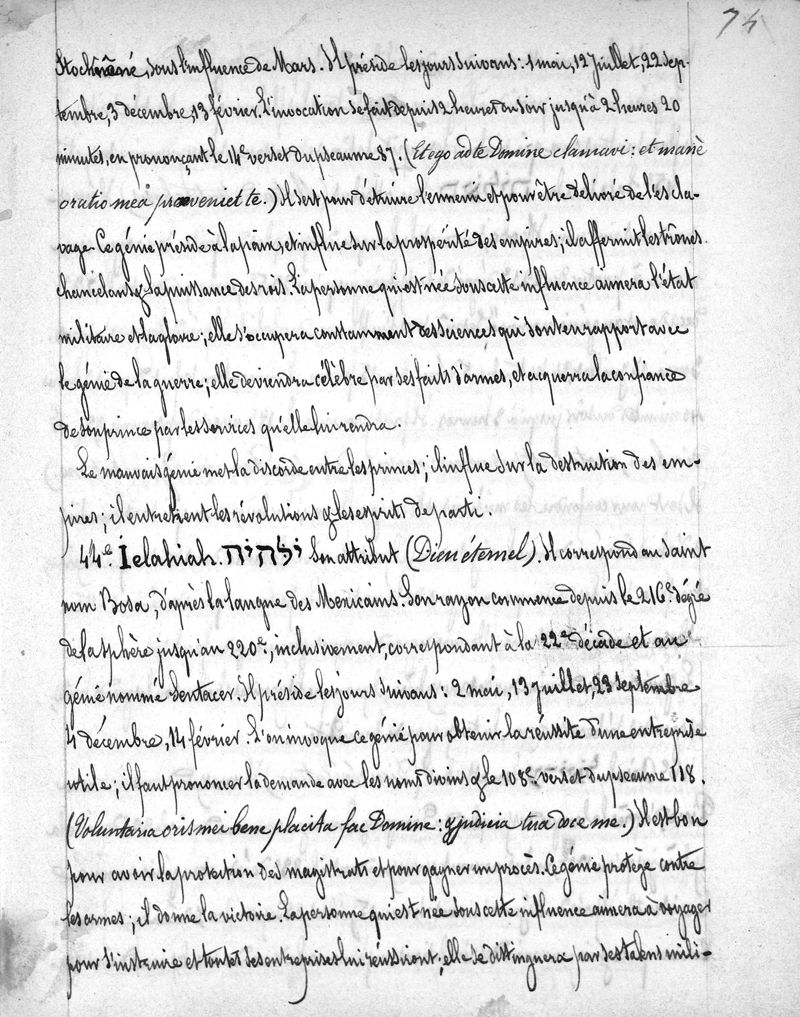 74
Stochnéné, sous l'influence de Mars. Il préside les jours suivans: 1 mai, 12 juillet, 22 sep-
tembre, 3 décembre, 13 février. L'invocation se fait depuis 2 heures du soir jusqu'à 2 heures 20
minutes, en prononçant le 14e verset du pseaume 87. (Et ego ad te Domine clamavi: et manè
oratio mea præveniet te.) Il sert pour détruire l'ennemi et pour être délivré de l'escla-
vage. Ce génie préside à la paix, et influe sur la prospérité des empires; il affermit les trônes
chancelans & la puissance des rois. La personne qui est née sous cette influence aimera l'état
militaire et la gloire; elle s'occupera constamment des sciences qui sont en rapport avec
le génie de la guerre; elle deviendra célèbre par ses faits d'armes, et acquerra la confiance
de son prince par les services qu'elle lui rendra.
Le mauvais génie met la discorde entre les princes; il influe sur la destruction des em-
pires; il entretient les révolutions & les esprits de parti.
44e. Ielahiah. ילהיה Son attribut (Dieu éternel). Il correspond au saint
nom Bosa, d'après la langue des Mexicains. Son rayon commence depuis le 216e. dégré
de la sphère jusqu'au 220e, inclusivement, correspondant à la 22e décade et au
génie nommé Sentacer. Il préside les jours suivans: 2 mai, 13 juillet, 23 septembre
4 décembre, 14 février. L'on invoque ce génie pour obtenir la réussite d'une entreprise
utile; il faut prononcer la demande avec les noms divins & le 108e. verset du pseaume 118.
(Voluntaria oris mei bene placita fac Domine: & judicia tua doce me.) Il est bon
pour avoir la protection des magistrats et pour gagner un procès. Ce génie protège contre
les armes; il donne la victoire. La personne qui est née sous cette influence aimera à voyager
pour s'instruire et toutes ses entreprises lui réussiront; elle se distinguera par ses talens mili-